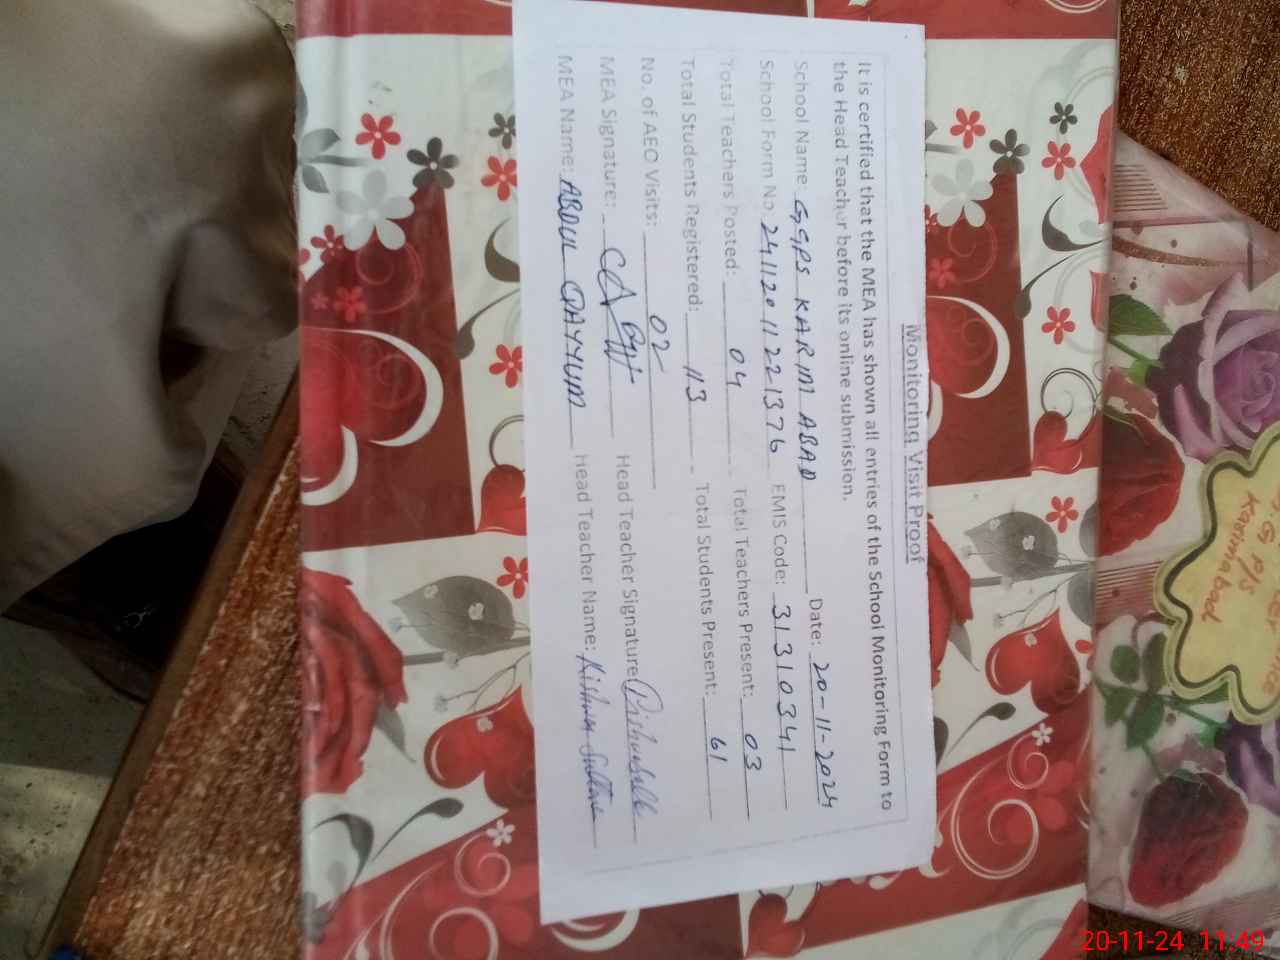 Monitoring Visit Proof
It is certified that the MEA has shown all entries of the School Monitoring Form to
the Head Teacher before its online submission.
School Name: GGPS KARIM ABAD Date: 20-11-2024
School Form No 24112011221376 EMIS Code: 31310341
Total Teachers Posted: 04 Total Teachers Present: 03
Total Students Registered: 113 Total Students Present: 61
No. of AEO Visits: 02
MEA Signature: Head Teacher Signature
MEA Name: ABDUL QAYYUM Head Teacher Name: Kishwar Sultana
G P/S
Karimabad
20-11-24 11:49